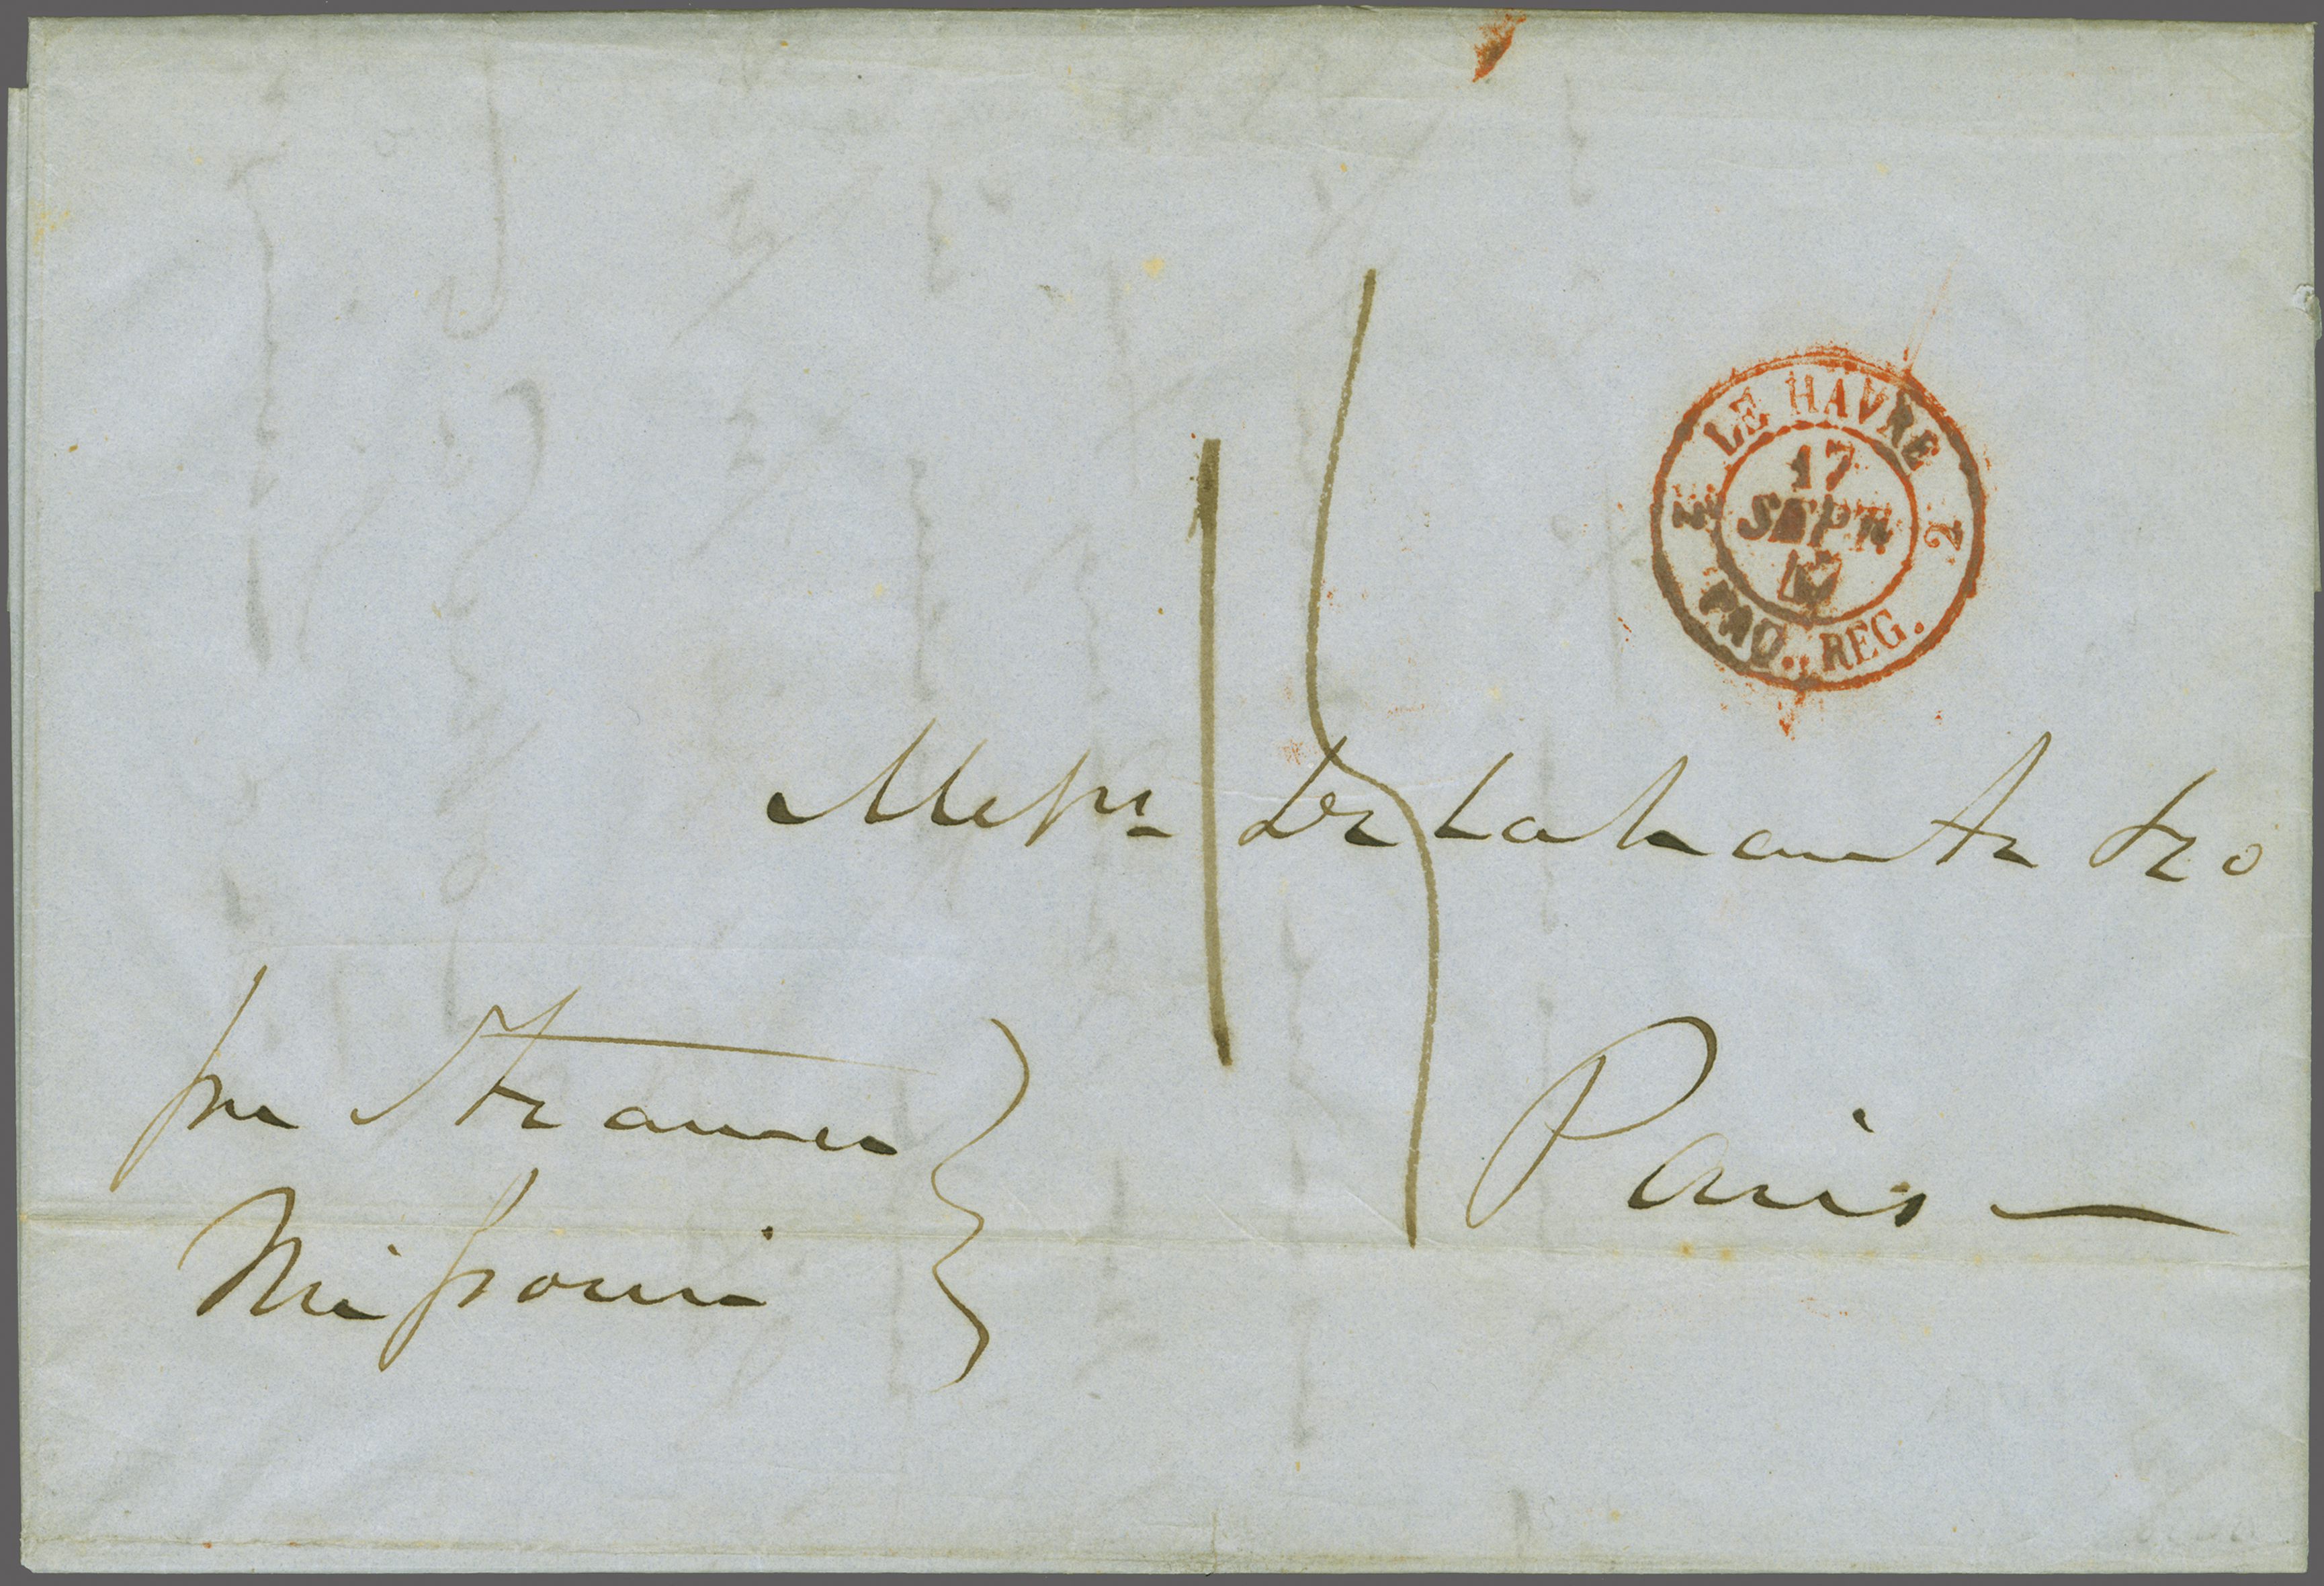 LE HAVRE
2 2
17
SEPT.
47
PAQ. REG.
15
Messrs De Lahante & Co
per Steamer
Missouri
Paris